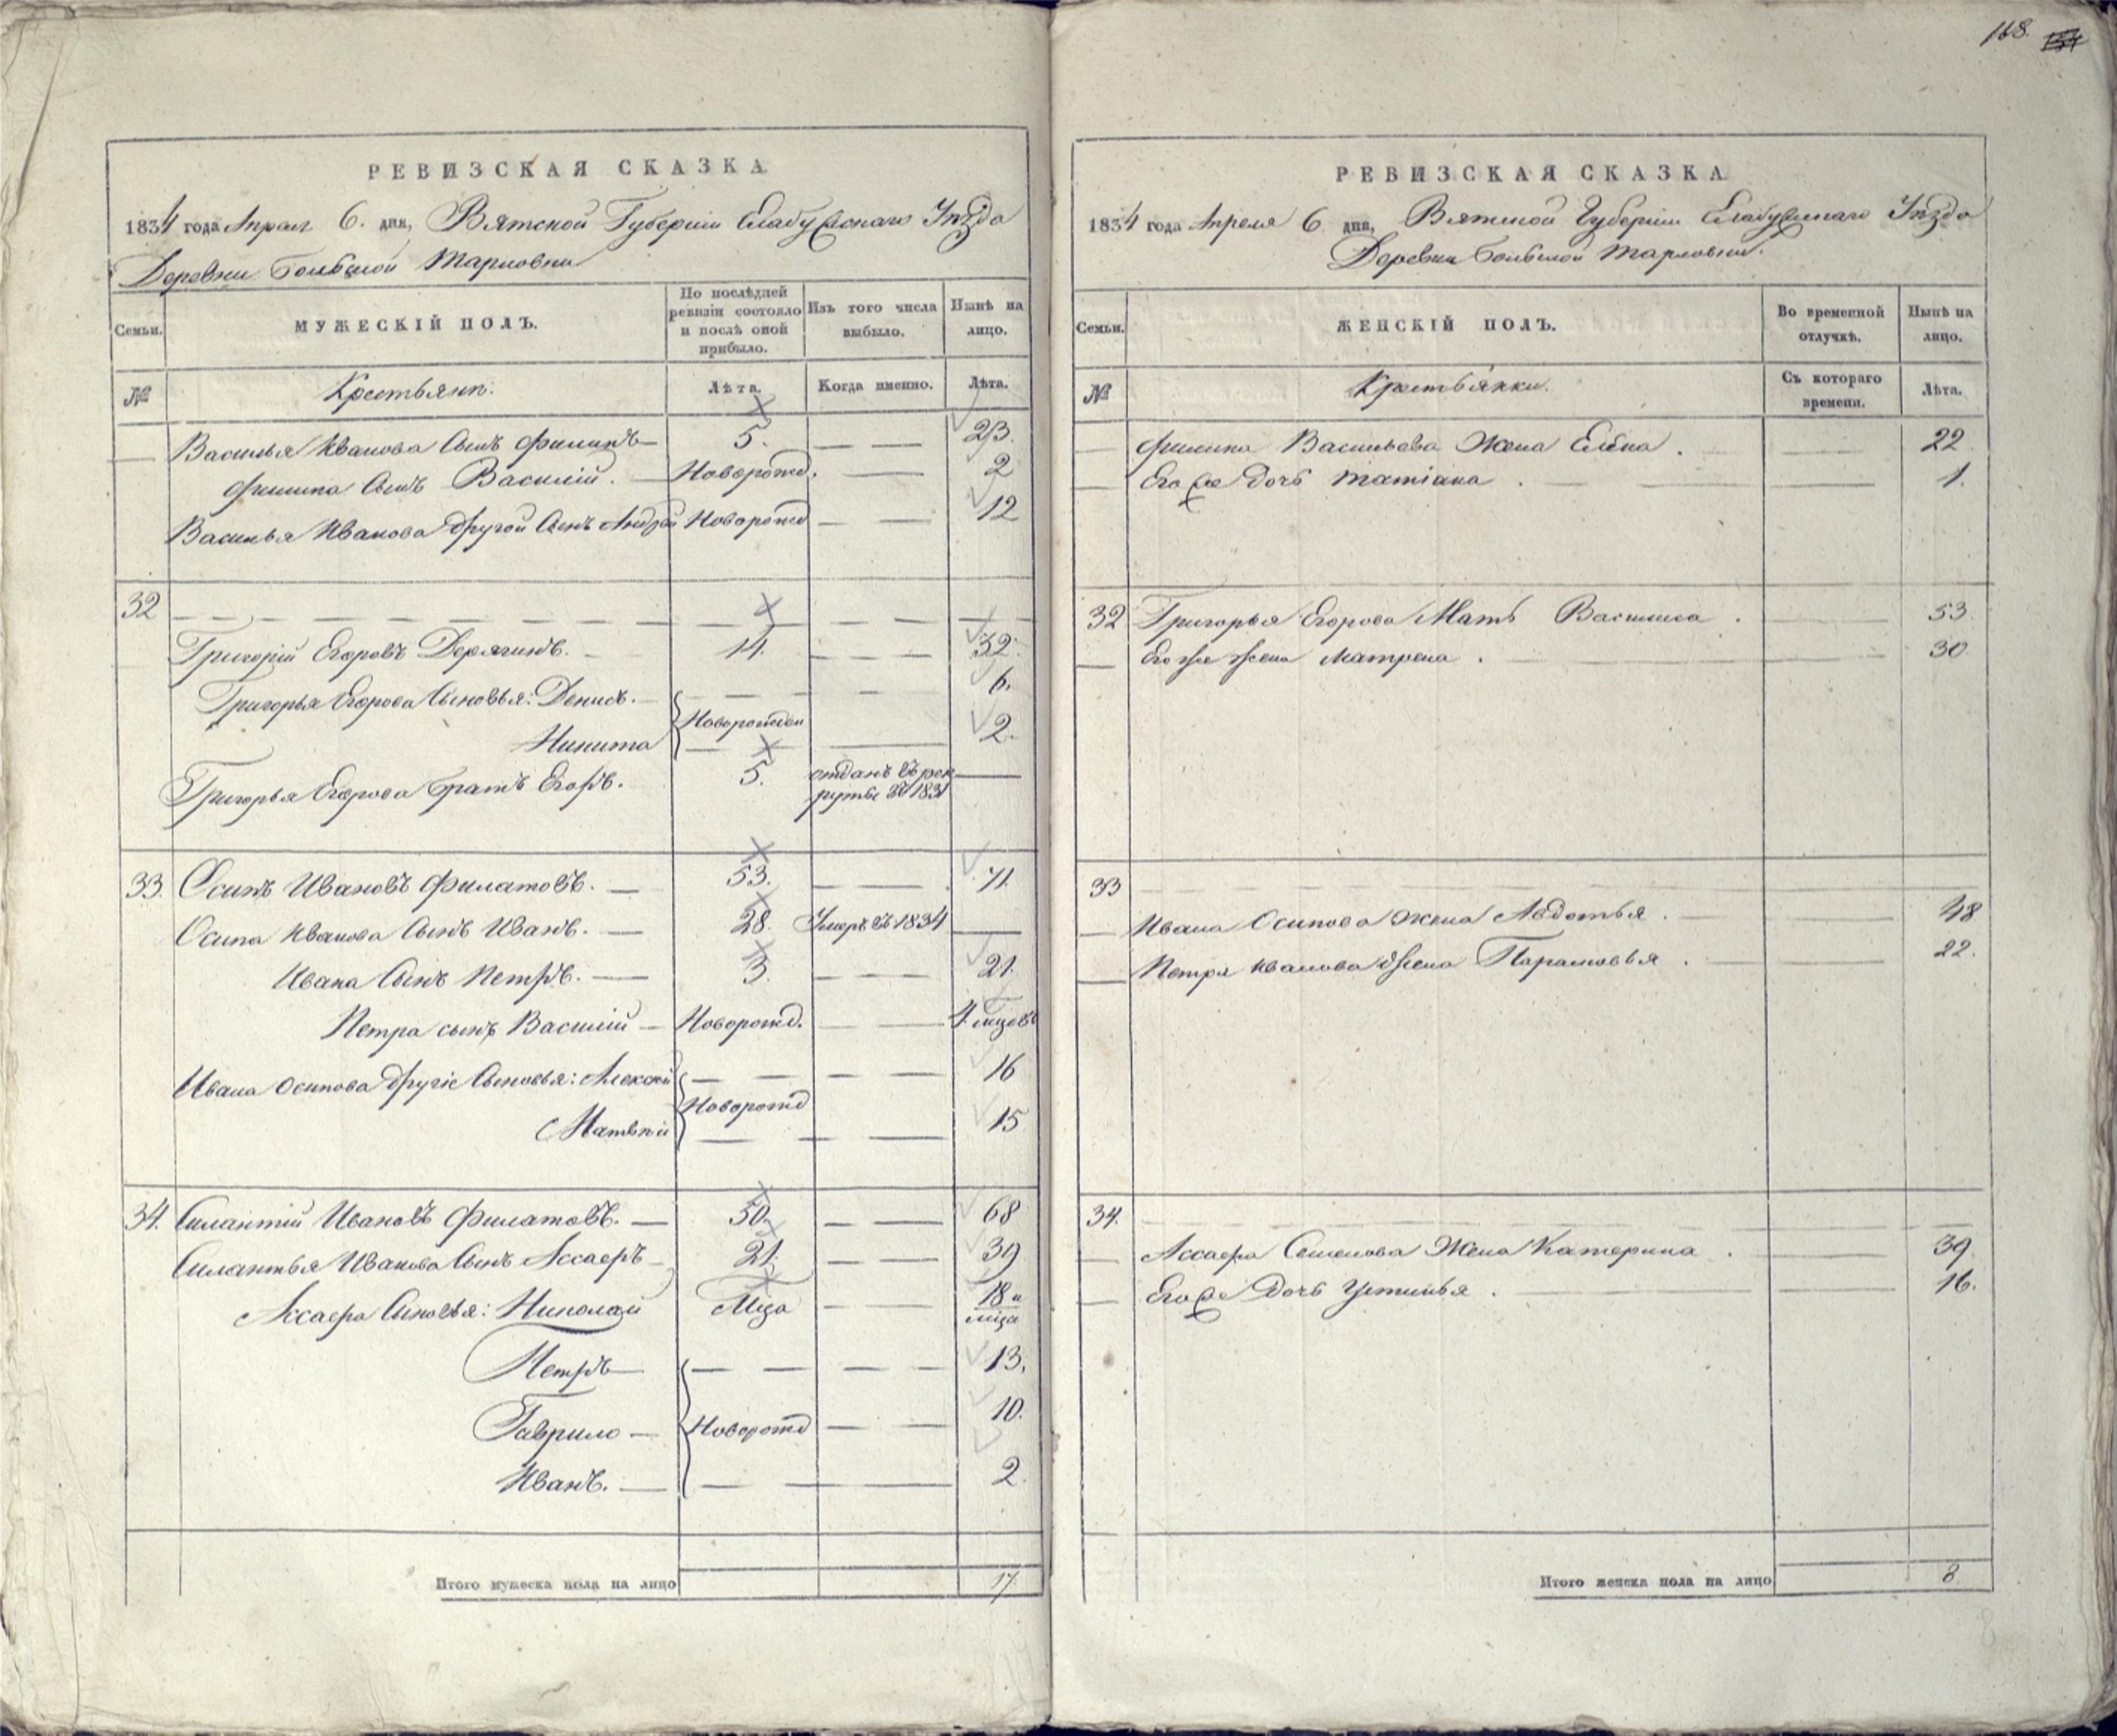 168.
РЕВИЗСКАЯ СКАЗКА
1834 года Апреля 6. дня, Вятской Губерніи Елабужскаго Уѣзда
Деревни Большой Тарловки
Семьи. МУЖЕСКІЙ ПОЛЪ. По послѣдней ревизіи состояло и послѣ оной прибыло. Изъ того числа выбыло. Нынѣ на лицо.
№ Крестьянѣ. Лѣта. Когда именно. Лѣта.
Василья Иванова Сынъ Филипъ 5. 23.
Филипа Сынъ Василій. Новорожд. 2
Василья Иванова другой Сынъ Андрей Новорожд 12
32
Григорій Егоровъ Дерягинъ. 14. 32.
Григорья Егорова Сыновья: Денисъ. 6.
Новорожден
Никита 2.
Григорья Егорова братъ Егоръ. 5. отданъ въ рек
руты въ 1831
33. Осипъ Ивановъ Филатовъ. 53. 71.
Осипа Иванова Сынъ Иванъ. 28. Умеръ въ 1834
Ивана Сынъ Петръ. 3. 21.
Петра сынъ Василій Новорожд. 4. мцовъ
Ивана Осипова другіе Сыновья: Алексѣй 16
Новорожд
Матвѣй 15
34. Силантій Ивановъ Филатовъ. 50. 68
Силантья Иванова Сынъ Ассаеръ 21. 39
Ассаера Сыновья: Николай Мца 18 и
мца
Петръ 13.
Гаврило Новорожд 10.
Иванъ. 2.
Итого мужеска пола на лицо 17
РЕВИЗСКАЯ СКАЗКА
1834 года Апреля 6 дня, Вятской Губерніи Елабужскаго Уѣзда
Деревни Большой Тарловки.
Семьи. ЖЕНСКІЙ ПОЛЪ. Во временной отлучкѣ. Нынѣ на лицо.
№ Крестьянки. Съ котораго времени. Лѣта.
Филипа Васильева Жена Елена. 22
Его же Дочь Татіана. 1.
32 Григорья Егорова Мать Василиса. 53
Его же Жена Матрена. 30
33
Ивана Осипова Жена Авдотья. 48
Петра Иванова Жена Парасковья. 22.
34.
Ассаера Жена Катерина. 39.
Его же Дочь Устинья. 16.
Итого женска пола на лицо 8